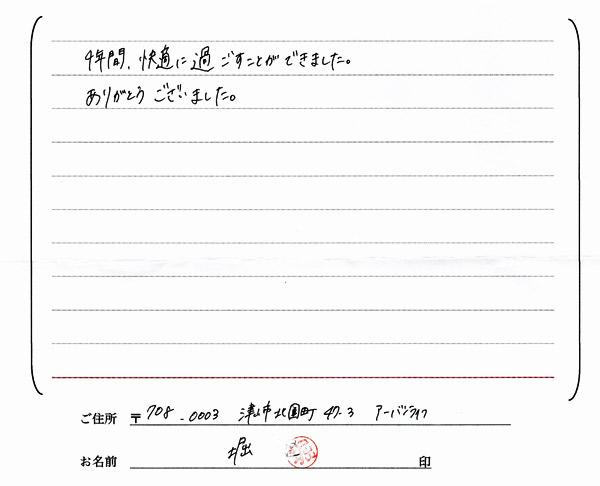 4年間、快適に過ごすことができました。
ありがとうございました。
ご住所 〒708-0003 津山市北園町47-3 アーバンライフ
お名前 堀 印